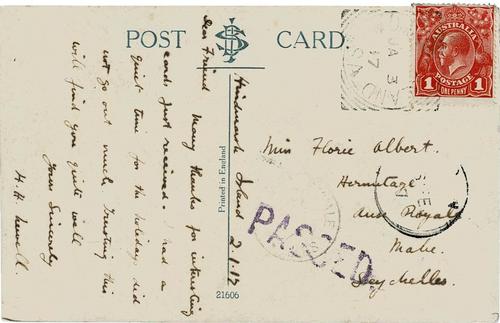 POST CARD.
Hindmarsh Island 2.1.17
Dear Friend Many thanks for interesting
cards just received, had a
quiet time for the holiday, did
not go out much. Trusting this
will find you quite well
Yours Sincerely
Printed in England
21606
AUSTRALIA
POSTAGE
1 1
ONE PENNY
JA 3
17
SA
Miss Florie Albert.
Hermitage
Rue Royale
Mahe.
Seychelles.
PASSED.